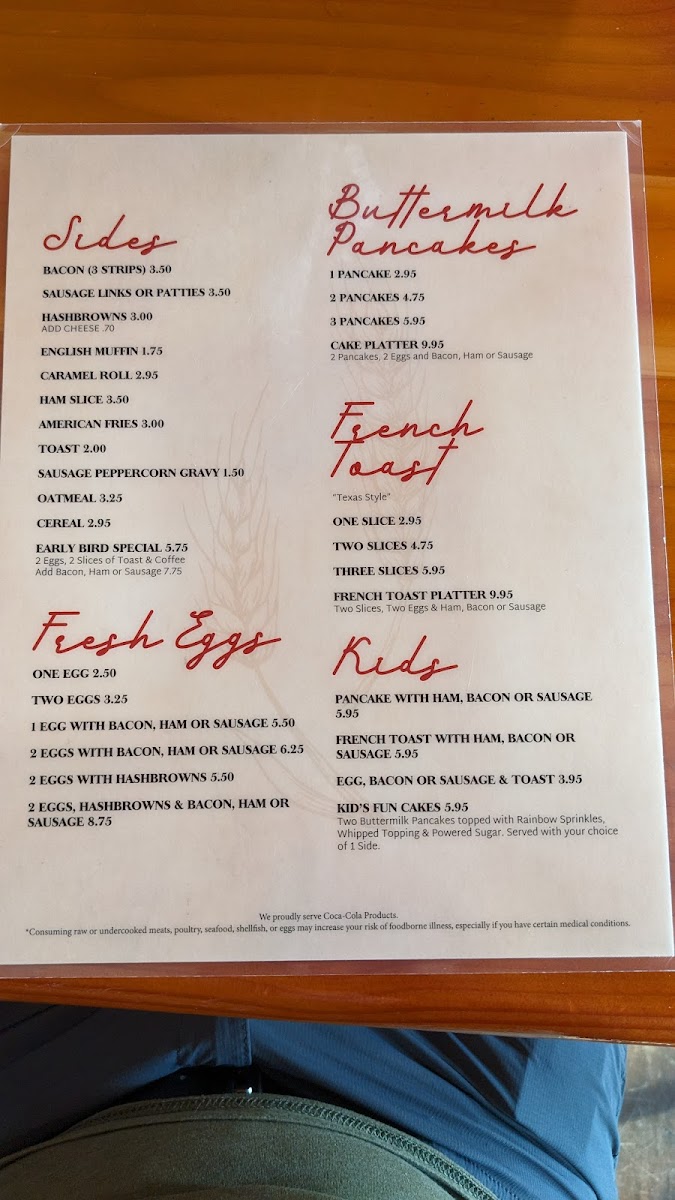 Sides
BACON (3 STRIPS) 3.50
SAUSAGE LINKS OR PATTIES 3.50
HASHBROWNS 3.00
ADD CHEESE .70
ENGLISH MUFFIN 1.75
CARAMEL ROLL 2.95
HAM SLICE 3.50
AMERICAN FRIES 3.00
TOAST 2.00
SAUSAGE PEPPERCORN GRAVY 1.50
OATMEAL 3.25
CEREAL 2.95
EARLY BIRD SPECIAL 5.75
2 Eggs, 2 Slices of Toast & Coffee
Add Bacon, Ham or Sausage 7.75
Fresh Eggs
ONE EGG 2.50
TWO EGGS 3.25
1 EGG WITH BACON, HAM OR SAUSAGE 5.50
2 EGGS WITH BACON, HAM OR SAUSAGE 6.25
2 EGGS WITH HASHBROWNS 5.50
2 EGGS, HASHBROWNS & BACON, HAM OR
SAUSAGE 8.75
Buttermilk
Pancakes
1 PANCAKE 2.95
2 PANCAKES 4.75
3 PANCAKES 5.95
CAKE PLATTER 9.95
2 Pancakes, 2 Eggs and Bacon, Ham or Sausage
French
Toast
"Texas Style"
ONE SLICE 2.95
TWO SLICES 4.75
THREE SLICES 5.95
FRENCH TOAST PLATTER 9.95
Two Slices, Two Eggs & Ham, Bacon or Sausage
Kids
PANCAKE WITH HAM, BACON OR SAUSAGE
5.95
FRENCH TOAST WITH HAM, BACON OR
SAUSAGE 5.95
EGG, BACON OR SAUSAGE & TOAST 3.95
KID'S FUN CAKES 5.95
Two Buttermilk Pancakes topped with Rainbow Sprinkles,
Whipped Topping & Powered Sugar. Served with your choice
of 1 Side.
We proudly serve Coca-Cola Products.
*Consuming raw or undercooked meats, poultry, seafood, shellfish, or eggs may increase your risk of foodborne illness, especially if you have certain medical conditions.